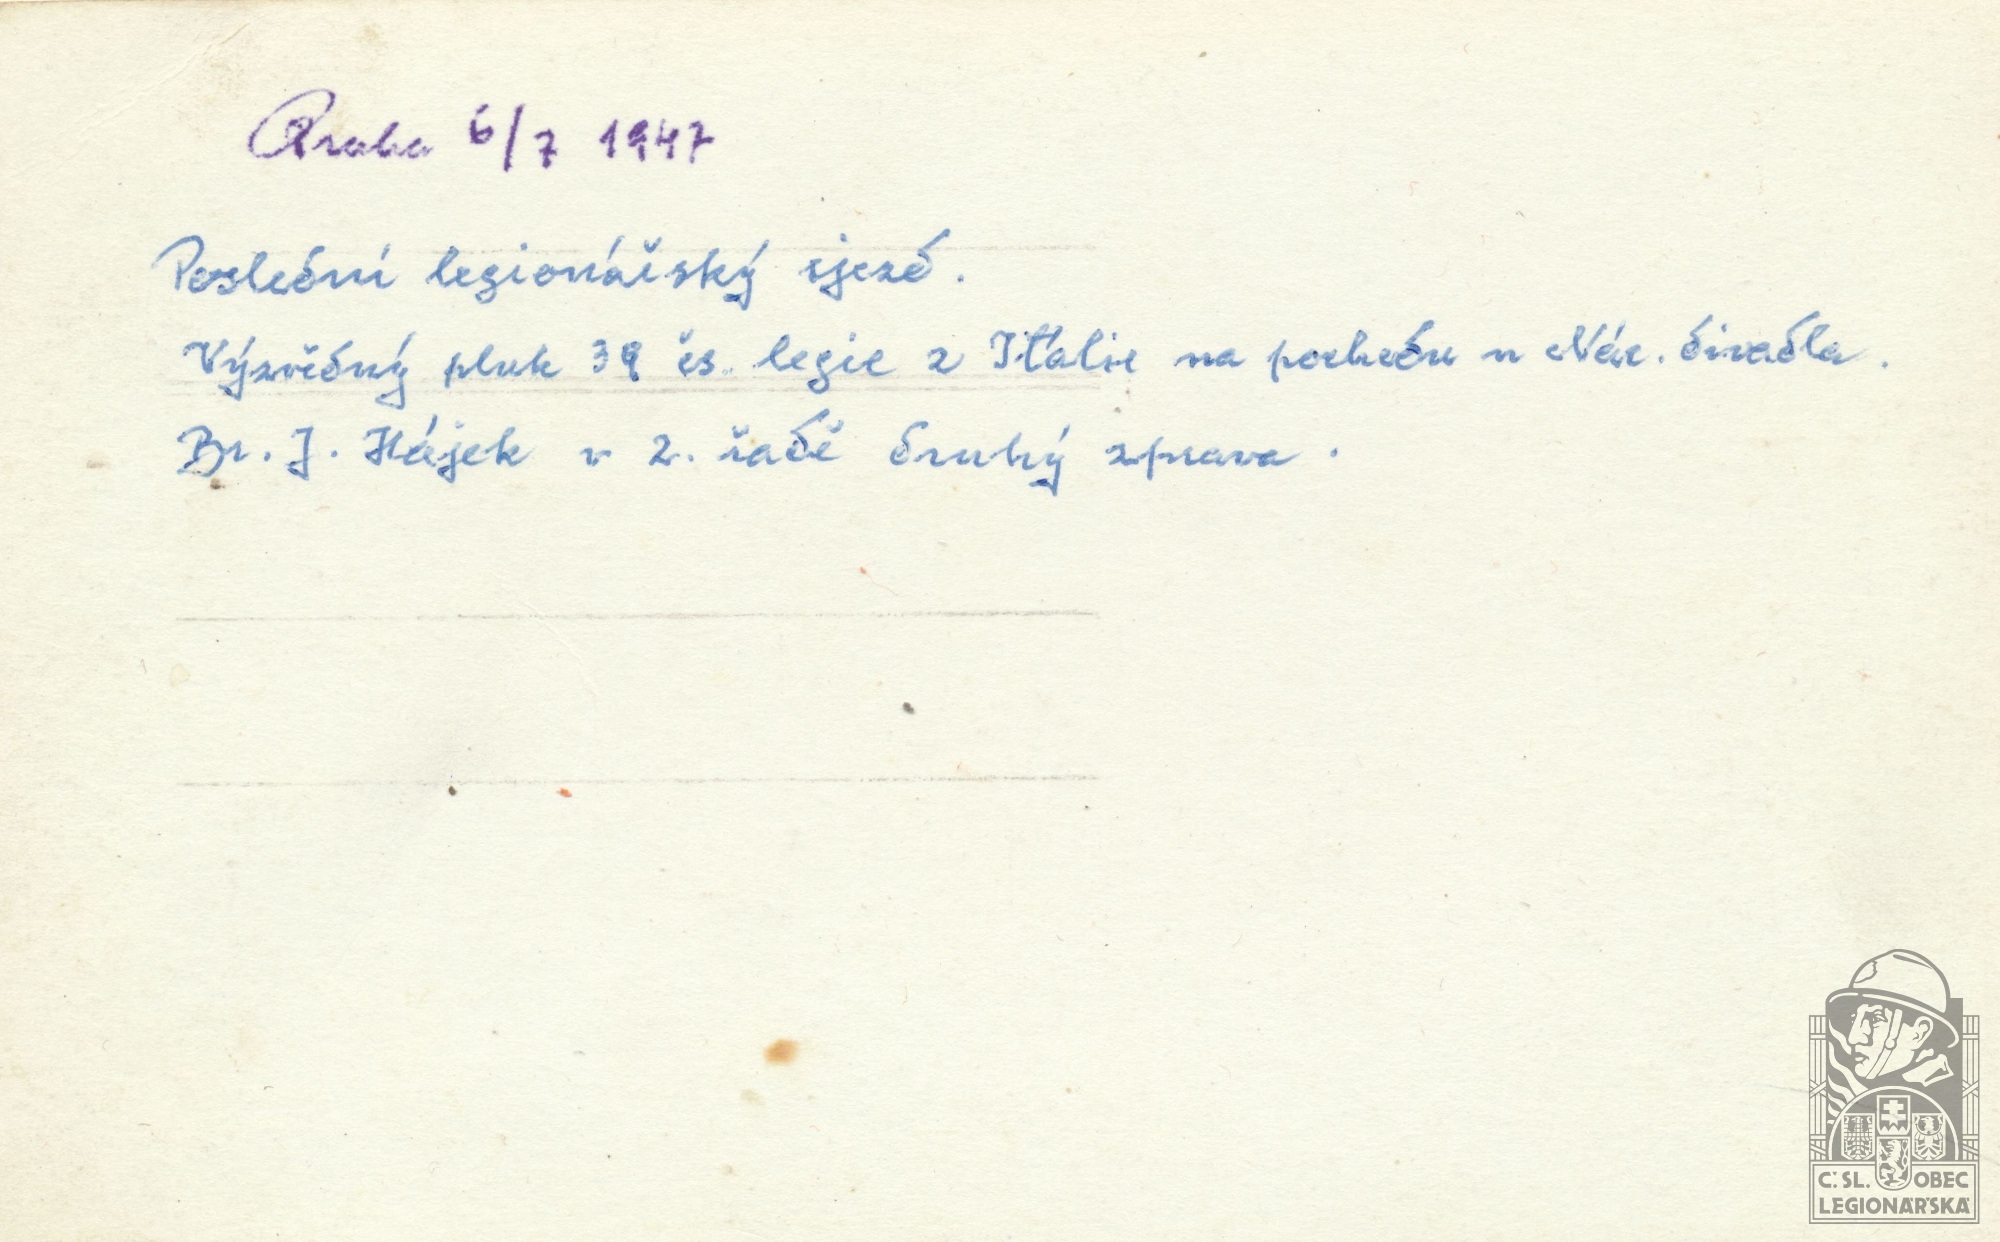 Praha 6/7 1947
Poslední legionářský sjezd.
Výzvědný pluk 39 čs. legie z Italie na pochodu u Nár. divadla.
Br. J. Hájek v 2. řadě druhý zprava.
Č. SL. OBEC
LEGIONÁŘSKÁ